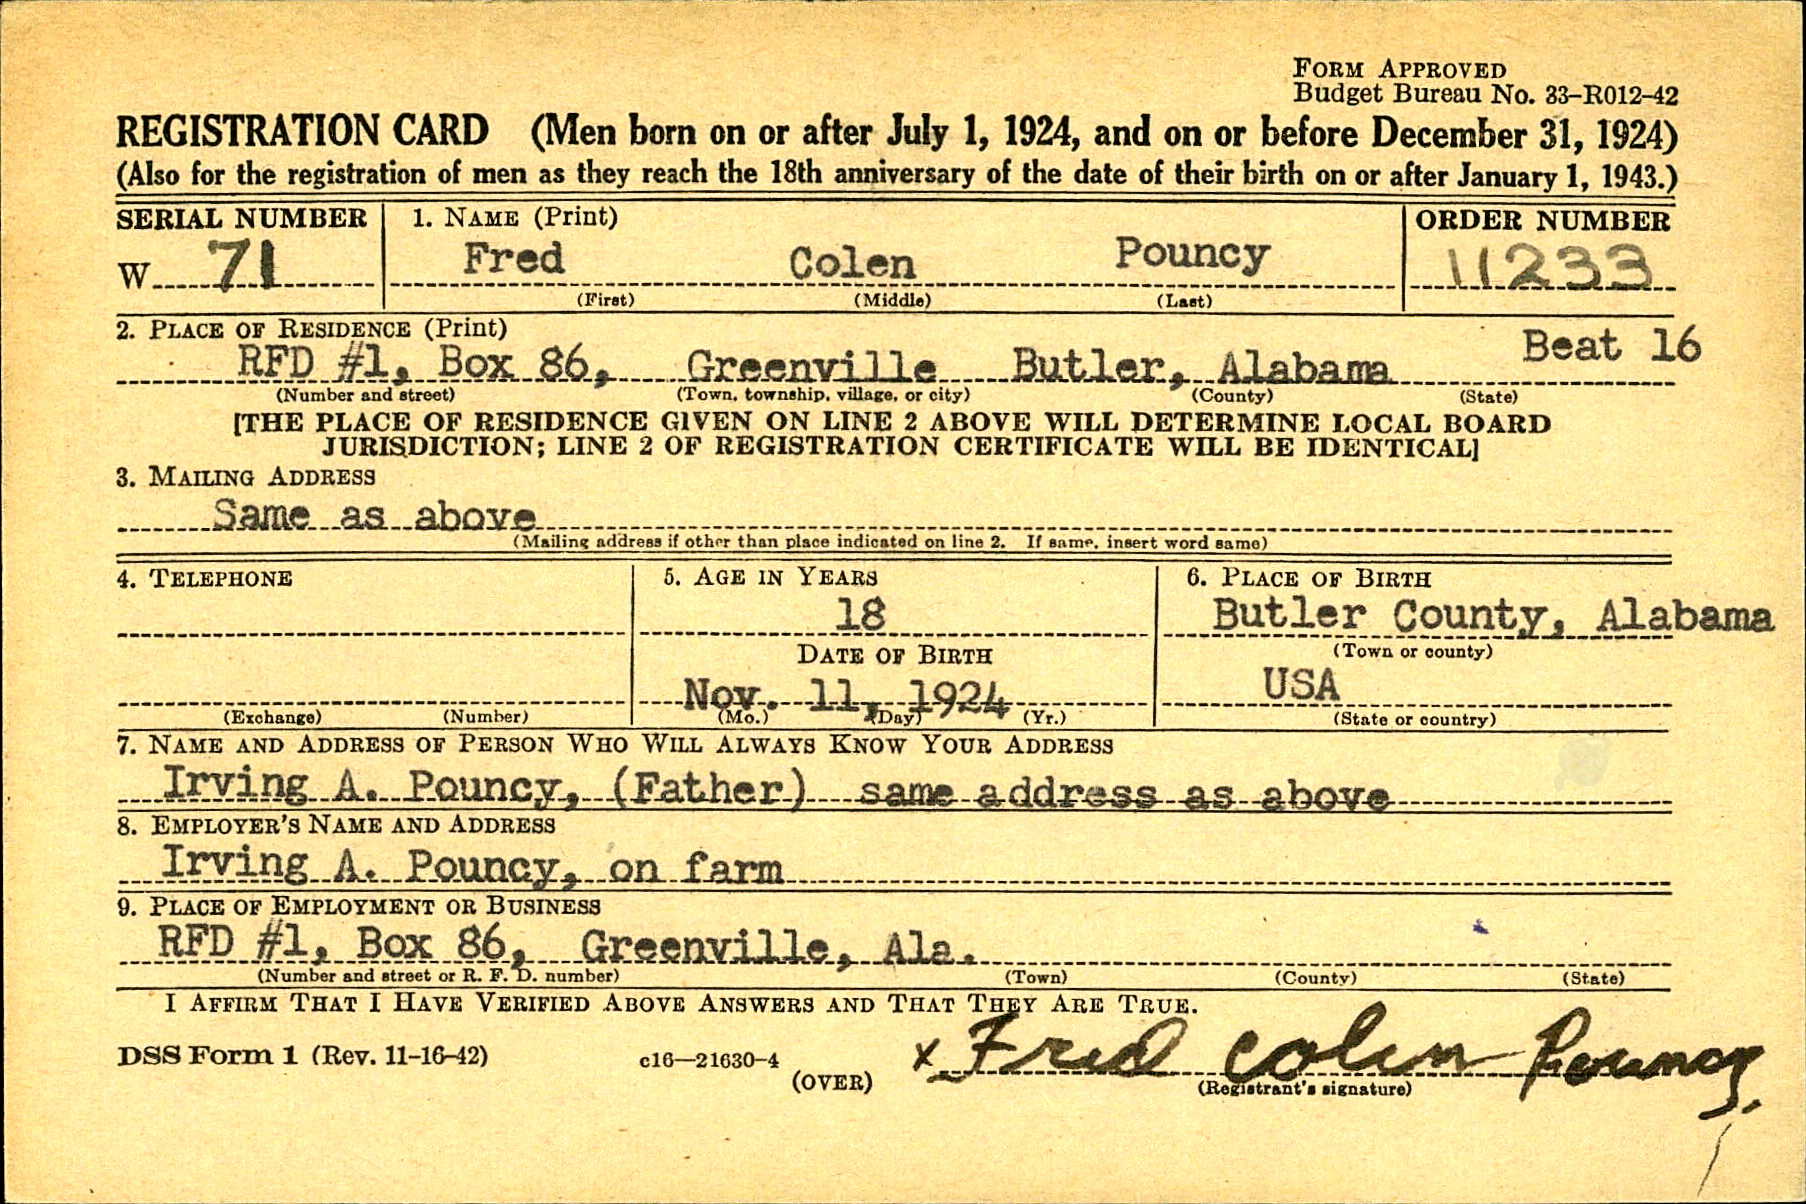 FORM APPROVED
Budget Bureau No. 33-R012-42
REGISTRATION CARD (Men born on or after July 1, 1924, and on or before December 31, 1924)
(Also for the registration of men as they reach the 18th anniversary of the date of their birth on or after January 1, 1943.)
SERIAL NUMBER 1. NAME (Print) ORDER NUMBER
W 71 Fred Colen Pouncy 11233
(First) (Middle) (Last)
2. PLACE OF RESIDENCE (Print)
Beat 16
RFD #1, Box 86, Greenville Butler, Alabama
(Number and street) (Town, township, village, or city) (County) (State)
[THE PLACE OF RESIDENCE GIVEN ON LINE 2 ABOVE WILL DETERMINE LOCAL BOARD
JURISDICTION; LINE 2 OF REGISTRATION CERTIFICATE WILL BE IDENTICAL]
3. MAILING ADDRESS
Same as above
(Mailing address if other than place indicated on line 2. If same, insert word same)
4. TELEPHONE 5. AGE IN YEARS 6. PLACE OF BIRTH
18 Butler County, Alabama
DATE OF BIRTH (Town or county)
Nov. 11, 1924 USA
(Exchange) (Number) (Mo.) (Day) (Yr.) (State or country)
7. NAME AND ADDRESS OF PERSON WHO WILL ALWAYS KNOW YOUR ADDRESS
Irving A. Pouncy, (Father) same address as above
8. EMPLOYER'S NAME AND ADDRESS
Irving A. Pouncy, on farm
9. PLACE OF EMPLOYMENT OR BUSINESS
RFD #1, Box 86, Greenville, Ala.
(Number and street or R. F. D. number) (Town) (County) (State)
I AFFIRM THAT I HAVE VERIFIED ABOVE ANSWERS AND THAT THEY ARE TRUE.
DSS Form 1 (Rev. 11-16-42) c16—21630-4 x Fred Colen Pouncy.
(OVER) (Registrant's signature)